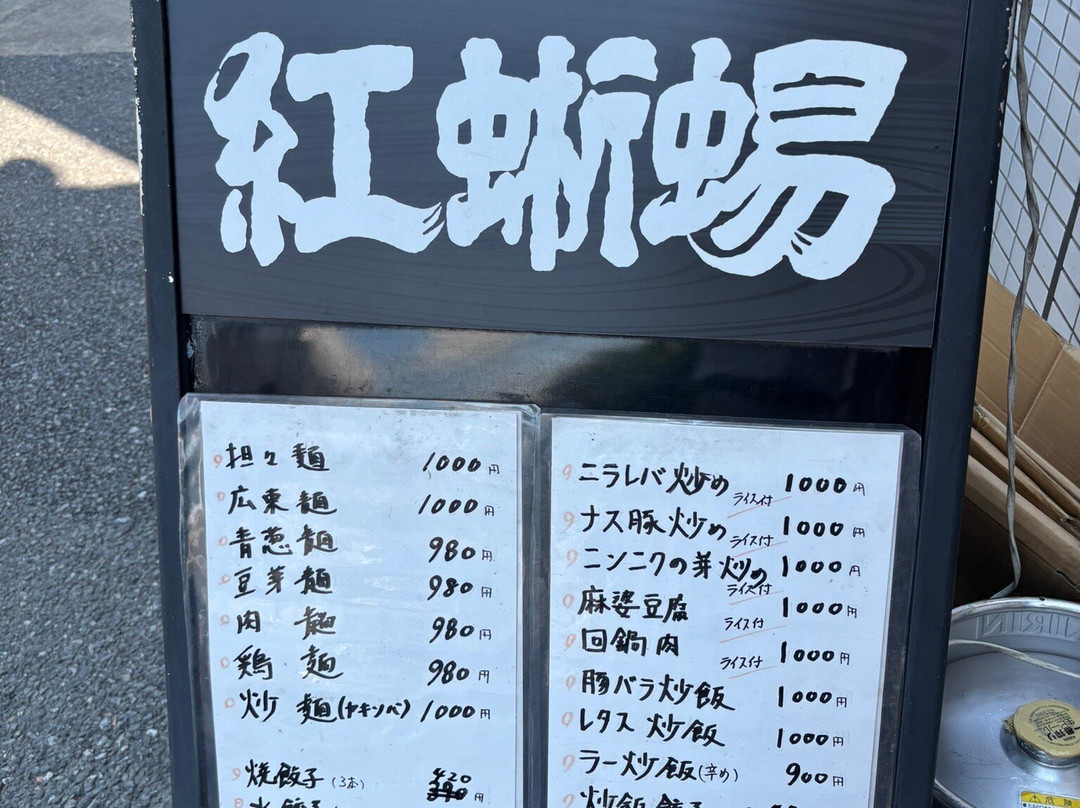 紅蜥蜴
担々麺 1000円
広東麺 1000円
青葱麺 980円
豆芽麺 980円
肉麺 980円
鶏麺 980円
炒麺(ヤキソバ) 1000円
焼餃子(3本) 420 円
水餃子
ニラレバ炒め ライス付 1000円
ナス豚炒め ライス付 1000円
ニンニクの芽炒め ライス付 1000円
麻婆豆腐 ライス付 1000円
回鍋肉 ライス付 1000円
豚バラ炒飯 1000円
レタス炒飯 1000円
ラー炒飯(辛め) 900円
炒飯餃子
KIRIN
危険